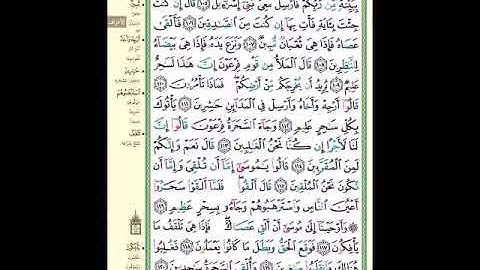 بِبَيِّنَةٍ مِّن رَّبِّكُمْ فَأَرْسِلْ مَعِيَ بَنِيٓ إِسْرَٰٓءِيلَ ١٠٥ قَالَ إِن كُنتَ
جِئْتَ بِـَٔايَةٍ فَأْتِ بِهَآ إِن كُنتَ مِنَ ٱلصَّٰدِقِينَ ١٠٦ فَأَلْقَىٰ
عَصَاهُ فَإِذَا هِيَ ثُعْبَانٌ مُّبِينٌ ١٠٧ وَنَزَعَ يَدَهُۥ فَإِذَا هِيَ بَيْضَآءُ
لِلنَّٰظِرِينَ ١٠٨ قَالَ ٱلْمَلَأُ مِن قَوْمِ فِرْعَوْنَ إِنَّ هَٰذَا لَسَٰحِرٌ
عَلِيمٌ ١٠٩ يُرِيدُ أَن يُخْرِجَكُم مِّنْ أَرْضِكُمْ ۖ فَمَاذَا تَأْمُرُونَ ١١٠
قَالُوٓا۟ أَرْجِهْ وَأَخَاهُ وَأَرْسِلْ فِي ٱلْمَدَآئِنِ حَٰشِرِينَ ١١١ يَأْتُوكَ
بِكُلِّ سَٰحِرٍ عَلِيمٍ ١١٢ وَجَآءَ ٱلسَّحَرَةُ فِرْعَوْنَ قَالُوٓا۟ إِنَّ
لَنَا لَأَجْرًا إِن كُنَّا نَحْنُ ٱلْغَٰلِبِينَ ١١٣ قَالَ نَعَمْ وَإِنَّكُمْ
لَمِنَ ٱلْمُقَرَّبِينَ ١١٤ قَالُوا۟ يَٰمُوسَىٰٓ إِمَّآ أَن تُلْقِيَ وَإِمَّآ أَن
نَّكُونَ نَحْنُ ٱلْمُلْقِينَ ١١٥ قَالَ أَلْقُوا۟ ۖ فَلَمَّآ أَلْقَوْا۟ سَحَرُوٓا۟
أَعْيُنَ ٱلنَّاسِ وَٱسْتَرْهَبُوهُمْ وَجَآءُو بِسِحْرٍ عَظِيمٍ ١١٦
۞ وَأَوْحَيْنَآ إِلَىٰ مُوسَىٰٓ أَنْ أَلْقِ عَصَاكَ ۖ فَإِذَا هِيَ تَلْقَفُ مَا
يَأْفِكُونَ ١١٧ فَوَقَعَ ٱلْحَقُّ وَبَطَلَ مَا كَانُوا۟ يَعْمَلُونَ ١١٨ فَغُلِبُوا۟
هُنَالِكَ وَٱنقَلَبُوا۟ صَٰغِرِينَ ١١٩ وَأُلْقِيَ ٱلسَّحَرَةُ سَٰجِدِينَ ١٢٠